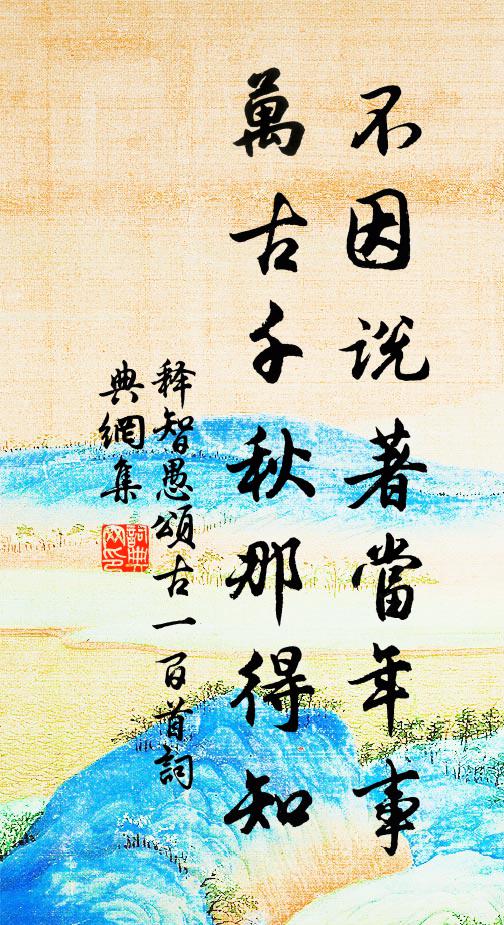 不因说著當年事
萬古千秋那得知
释智愚頌古一百首詞
典網集